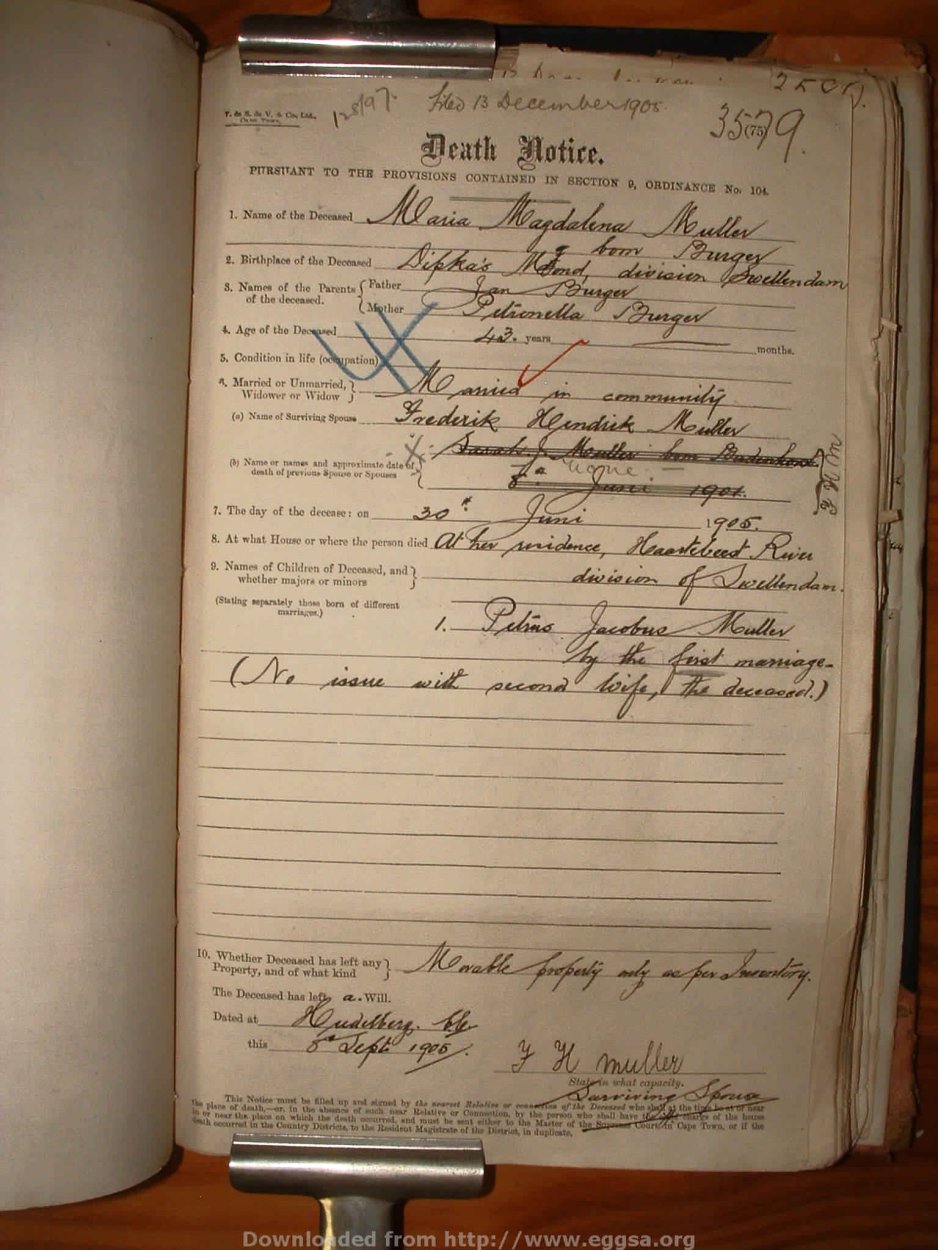 2501.
Filed 13 December 1905.
T. de S. de V. & Co., Ltd.,
Cape Town.
3579.
(75)
Death Notice.
PURSUANT TO THE PROVISIONS CONTAINED IN SECTION 9, ORDINANCE No. 104.
1. Name of the Deceased Maria Magdalena Muller
born Burger
2. Birthplace of the Deceased Dipka's Mond, division Swellendam
3. Names of the Parents of the deceased. { Father Jan Burger
Mother Petronella Burger
4. Age of the Deceased 43. years months.
5. Condition in life (occupation)
6. Married or Unmarried, Widower or Widow } Married in community
(a) Name of Surviving Spouse Frederik Hendrick Muller
Sarah J. Muller born Badenhorst
(b) Name or names and approximate date of death of previous Spouse or Spouses } none
8th Juni 1901.
F H M
7. The day of the decease: on 30th Juni 1905.
8. At what House or where the person died At her residence, Haartebeest River
division of Swellendam.
9. Names of Children of Deceased, and whether majors or minors }
(Stating separately those born of different marriages.)
1. Petrus Jacobus Muller
by the first marriage-
(No issue with second wife, the deceased.)
10. Whether Deceased has left any Property, and of what kind } Movable property only as per Inventory.
The Deceased has left a Will.
Dated at Heidelberg.
this 8th Sept 1905.
F H muller
State in what capacity.
Surviving Spouse
This Notice must be filled up and signed by the nearest Relative or connection of the Deceased who shall at the time be at or near
the place of death,—or, in the absence of such near Relative or Connection, by the person who shall have the chief charge of the house
in or near the place on which the death occurred, and must be sent either to the Master of the Supreme Court in Cape Town, or if the
death occurred in the Country Districts, to the Resident Magistrate of the District, in duplicate.
Downloaded from http://www.eggsa.org